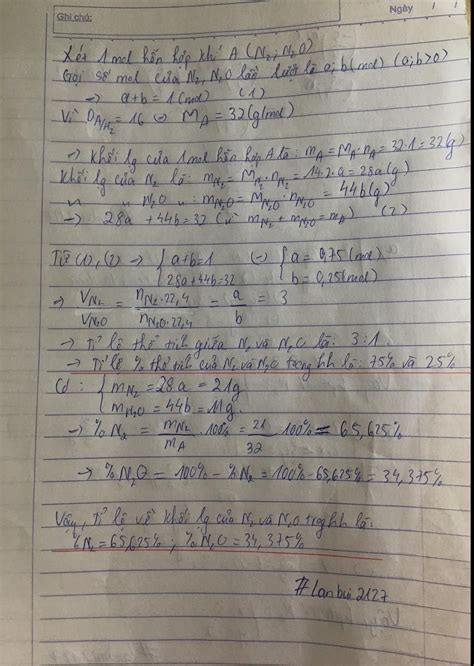 Ghi chú:
Ngày / /
Xét 1 mol hỗn hợp khí A (N2; N2O)
Gọi số mol của N2, N2O lần lượt là a; b (mol) (a; b>0)
→ a+b = 1 (mol) (1)
Vì D A/H2 = 16 ⇔ MA = 32 (g/mol)
→ Khối lg của 1 mol hỗn hợp A là: mA = MA.nA = 32.1 = 32 (g)
Khối lg của N2 là: mN2 = MN2.nN2 = 14.2.a = 28a (g)
" " N2O ": mN2O = MN2O.nN2O = 44b (g)
→ 28a + 44b = 32 (vì mN2 + mN2O = mA) (2)
Từ (1), (2) → { a+b=1 (→ { a = 0,75 (mol)
28a+44b=32 b = 0,25 (mol)
⇒ VN2 / VN2O = nN2.22,4 / nN2O.22,4 = a / b = 3
→ Tỉ lệ thể tích giữa N2 và N2O là: 3:1.
→ Tỉ lệ % thể tích của N2 và N2O trong hh là: 75% và 25%
Có: { mN2 = 28a = 21g
mN2O = 44b = 11g.
→ % N2 = mN2 / mA . 100% = 21 / 32 . 100% = 65,625%
→ % N2O = 100% - %N2 = 100% - 65,625% = 34,375%
Vậy, tỉ lệ về khối lg của N2 và N2O trog hh là:
%N2 = 65,625%; % N2O = 34,375%
#lanbui2127